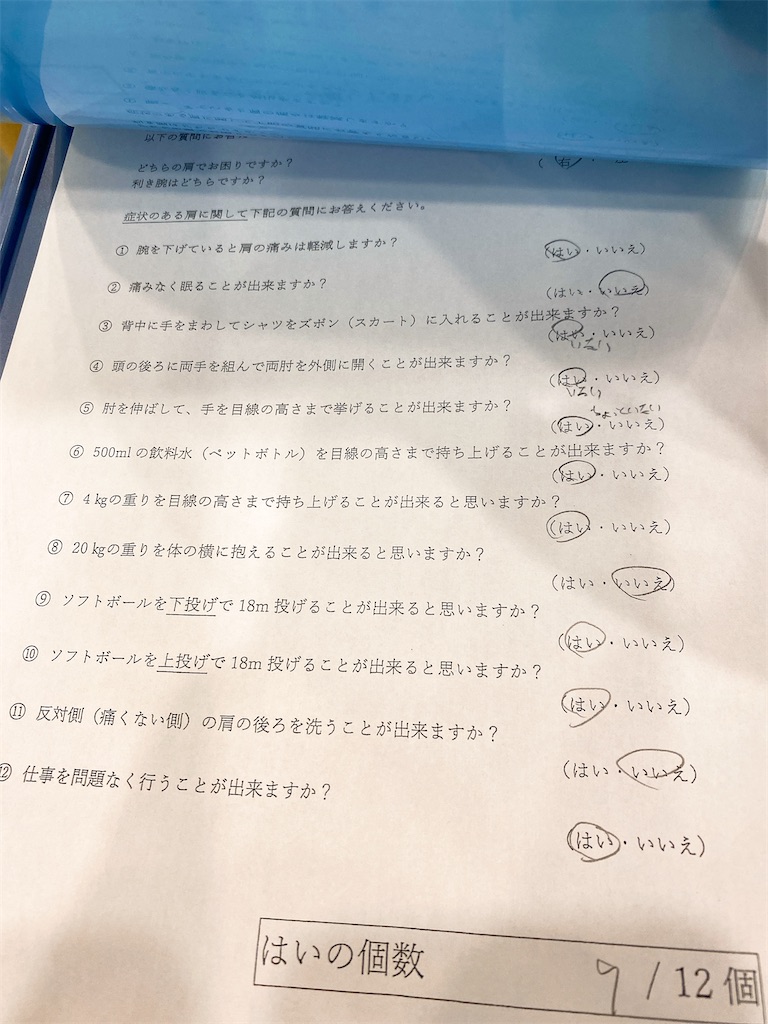 以下の質問にお答
どちらの肩でお困りですか? (右・
利き腕はどちらですか?
症状のある肩に関して下記の質問にお答えください。
① 腕を下げていると肩の痛みは軽減しますか? (はい・いいえ)
② 痛みなく眠ることが出来ますか? (はい・いいえ)
③ 背中に手をまわしてシャツをズボン(スカート)に入れることが出来ますか? (はい・いいえ)
④ 頭の後ろに両手を組んで両肘を外側に開くことが出来ますか? (はい・いいえ)
⑤ 肘を伸ばして、手を目線の高さまで挙げることが出来ますか? (はい・いいえ)
⑥ 500mlの飲料水(ペットボトル)を目線の高さまで持ち上げることが出来ますか? (はい・いいえ)
⑦ 4㎏の重りを目線の高さまで持ち上げることが出来ると思いますか? (はい・いいえ)
⑧ 20㎏の重りを体の横に抱えることが出来ると思いますか? (はい・いいえ)
⑨ ソフトボールを下投げで18m投げることが出来ると思いますか? (はい・いいえ)
⑩ ソフトボールを上投げで18m投げることが出来ると思いますか? (はい・いいえ)
⑪ 反対側(痛くない側)の肩の後ろを洗うことが出来ますか? (はい・いいえ)
⑫ 仕事を問題なく行うことが出来ますか? (はい・いいえ)
はいの個数 9 / 12個